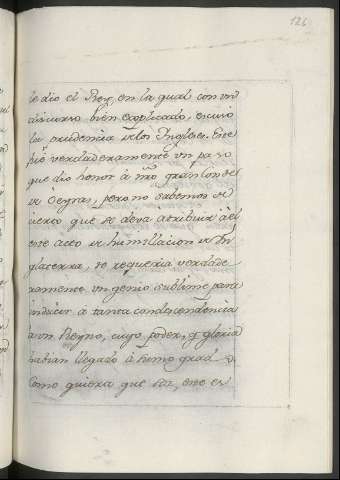 126
le dio el Rey, en la qual con vn
discurso bien explicado, escusò
la prudencia de los Ingleses. Este
fuè verdaderamente vn paso
que dio honor à nr̃o
de Veynas, pero no sabemos de
cierto que se deva atribuir à èl
este acto de humillacion de In
glaterra, se requeria verdade
ramente vn genio sublime para
inducir à tanta condescendencia
à vn Reyno, cuyo poder, y gloria
habian llegado à sumo grado
Como quiera que sea, este es